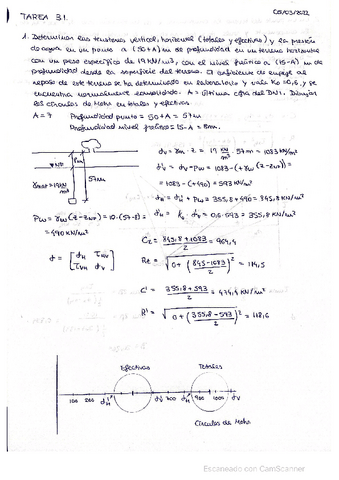 TAREA 3.1.
03/03/2022
1. Determinar las tensiones vertical, horizontal (totales y efectivas) y la presión
de agua en un punto a (50+A) m de profundidad en un terreno horizontal
con un peso específico de 19 kN/m³, con el nivel freático a (15-A) m de
profundidad desde la superficie del terreno. El coeficiente de empuje al
reposo de este terreno se ha determinado en laboratorio y vale Ko=0,6, y se
encuentra normalmente consolidado. A = última cifra del DNI. Dibujar
los círculos de Mohr en totales y efectivas.
A = 7 Profundidad punto = 50+A = 57m
Profundidad nivel freático = 15-A = 8m.
σv = γsat · z = 19 kN/m³ · 57m = 1083 kN/m²
σ'v = σv - Pw = 1083 - (+γw (z-znf)) =
= 1083 - (+490) = 593 kN/m²
σH = σ'H + Pw = 355,8 + 490 = 845,8 kN/m²
Pw = γw (z-znf) = 10·(57-8) = 490 kN/m²
σ'H = Ko · σ'v = 0,6·593 = 355,8 kN/m²
8m
57m
γsat = 19 kN/m³
σ = [σH τHV τVH σv]
Ct = 845,8+1083 / 2 = 964,4
Rt = √(0 + (845-1083 / 2)²) = 118,5
C' = 355,8+593 / 2 = 474,4 kN/m²
R' = √(0 + (355,8-593 / 2)²) = 118,6
Efectivas Totales
100 200 σ'H σ'v 700 σH 900 1000 σv
Círculos de Mohr
Escaneado con CamScanner